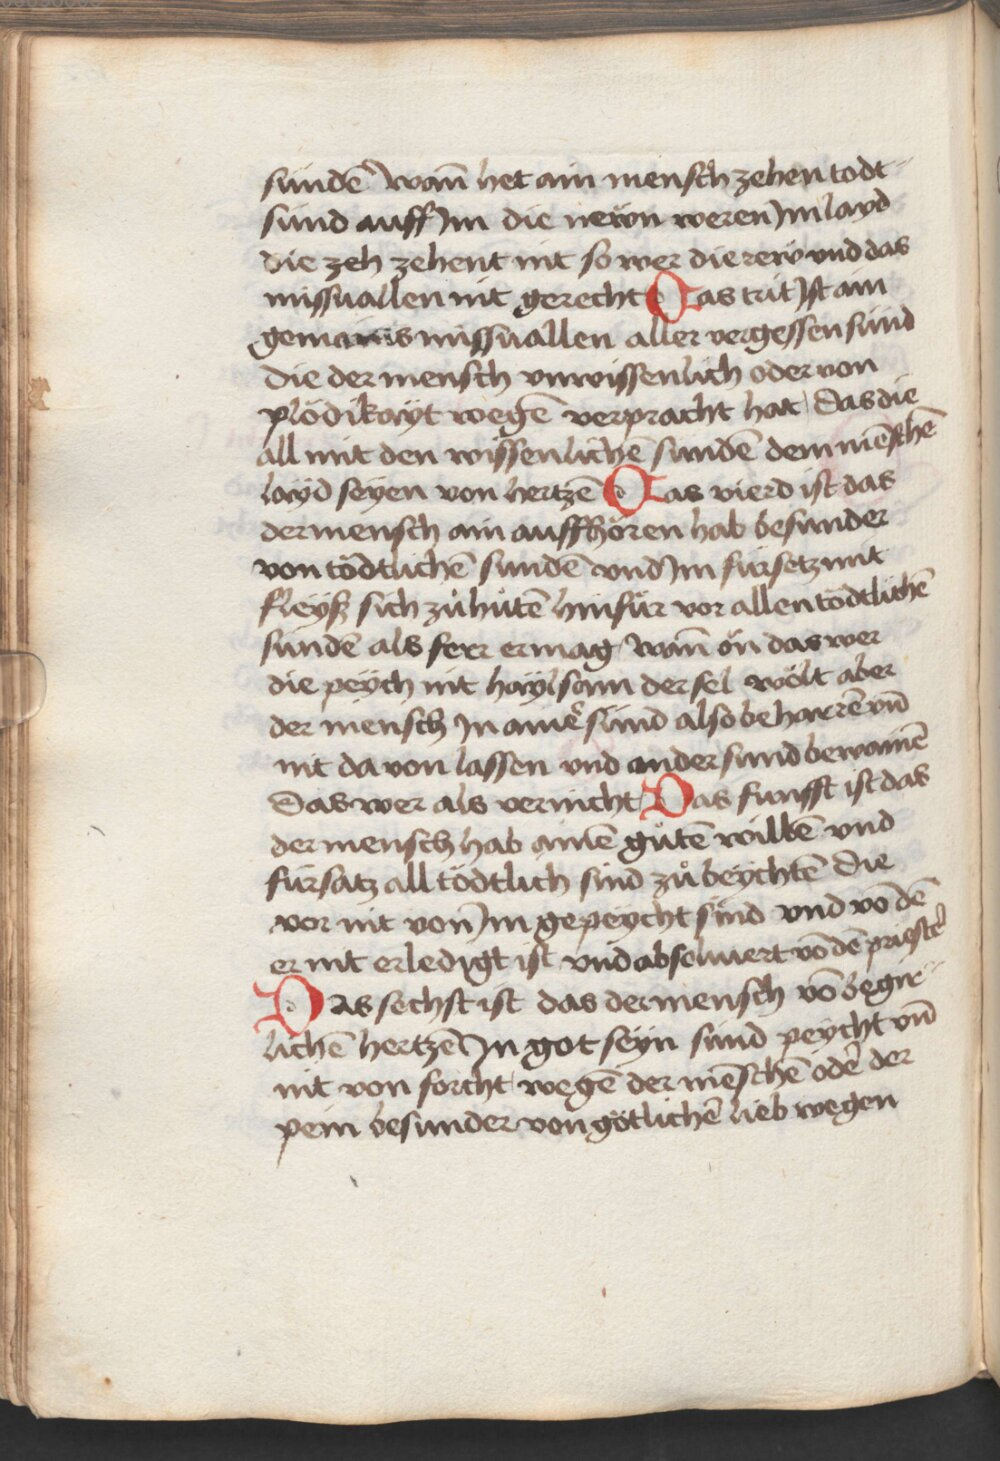 sündē wañ het ain mensch zehen todt-
sünd auff Im die newn weren Im layd
die zeh zehent nit so wer die rew vnd das
missuallen nit gerecht Das trit Ist ain
gemains missuallen aller vergessen sünd
die der mensch vnwissenlich oder von
plödikayt wegē verpracht hat das die
all mit den wissenlichē sundē dem mēschē
layd seyen von hertzē Das vierd ist das
der mensch ain auffhören hab besunder
von tödtlichē sundē vnd Im fürsetz mit
fleyß sich zů hůtē hinfür vor allen tödtlichē
sundē als ferr er mag wañ ön das wer
die peych nit haylsam der sel wölt aber
der mensch In ainer sünd also beharrē vñ
nit da von lassen vnd ander sund bewainē
Das wer als vernicht Das funfft ist das
der mensch hab ainē gůtē willē vnd
fürsatz all tödtlich sünd zů beychtē die
vor nit von Im gepeycht sind vnd vō dē
er nit erledigt ist vnd absoluiert vō dē priestē
Das sechst ist das der mensch vō begir-
lichē hertzē In got seyn sünd peycht vñ
nit von forcht wegē der mēschē odē der
pein besunder von götlichē lieb wegen